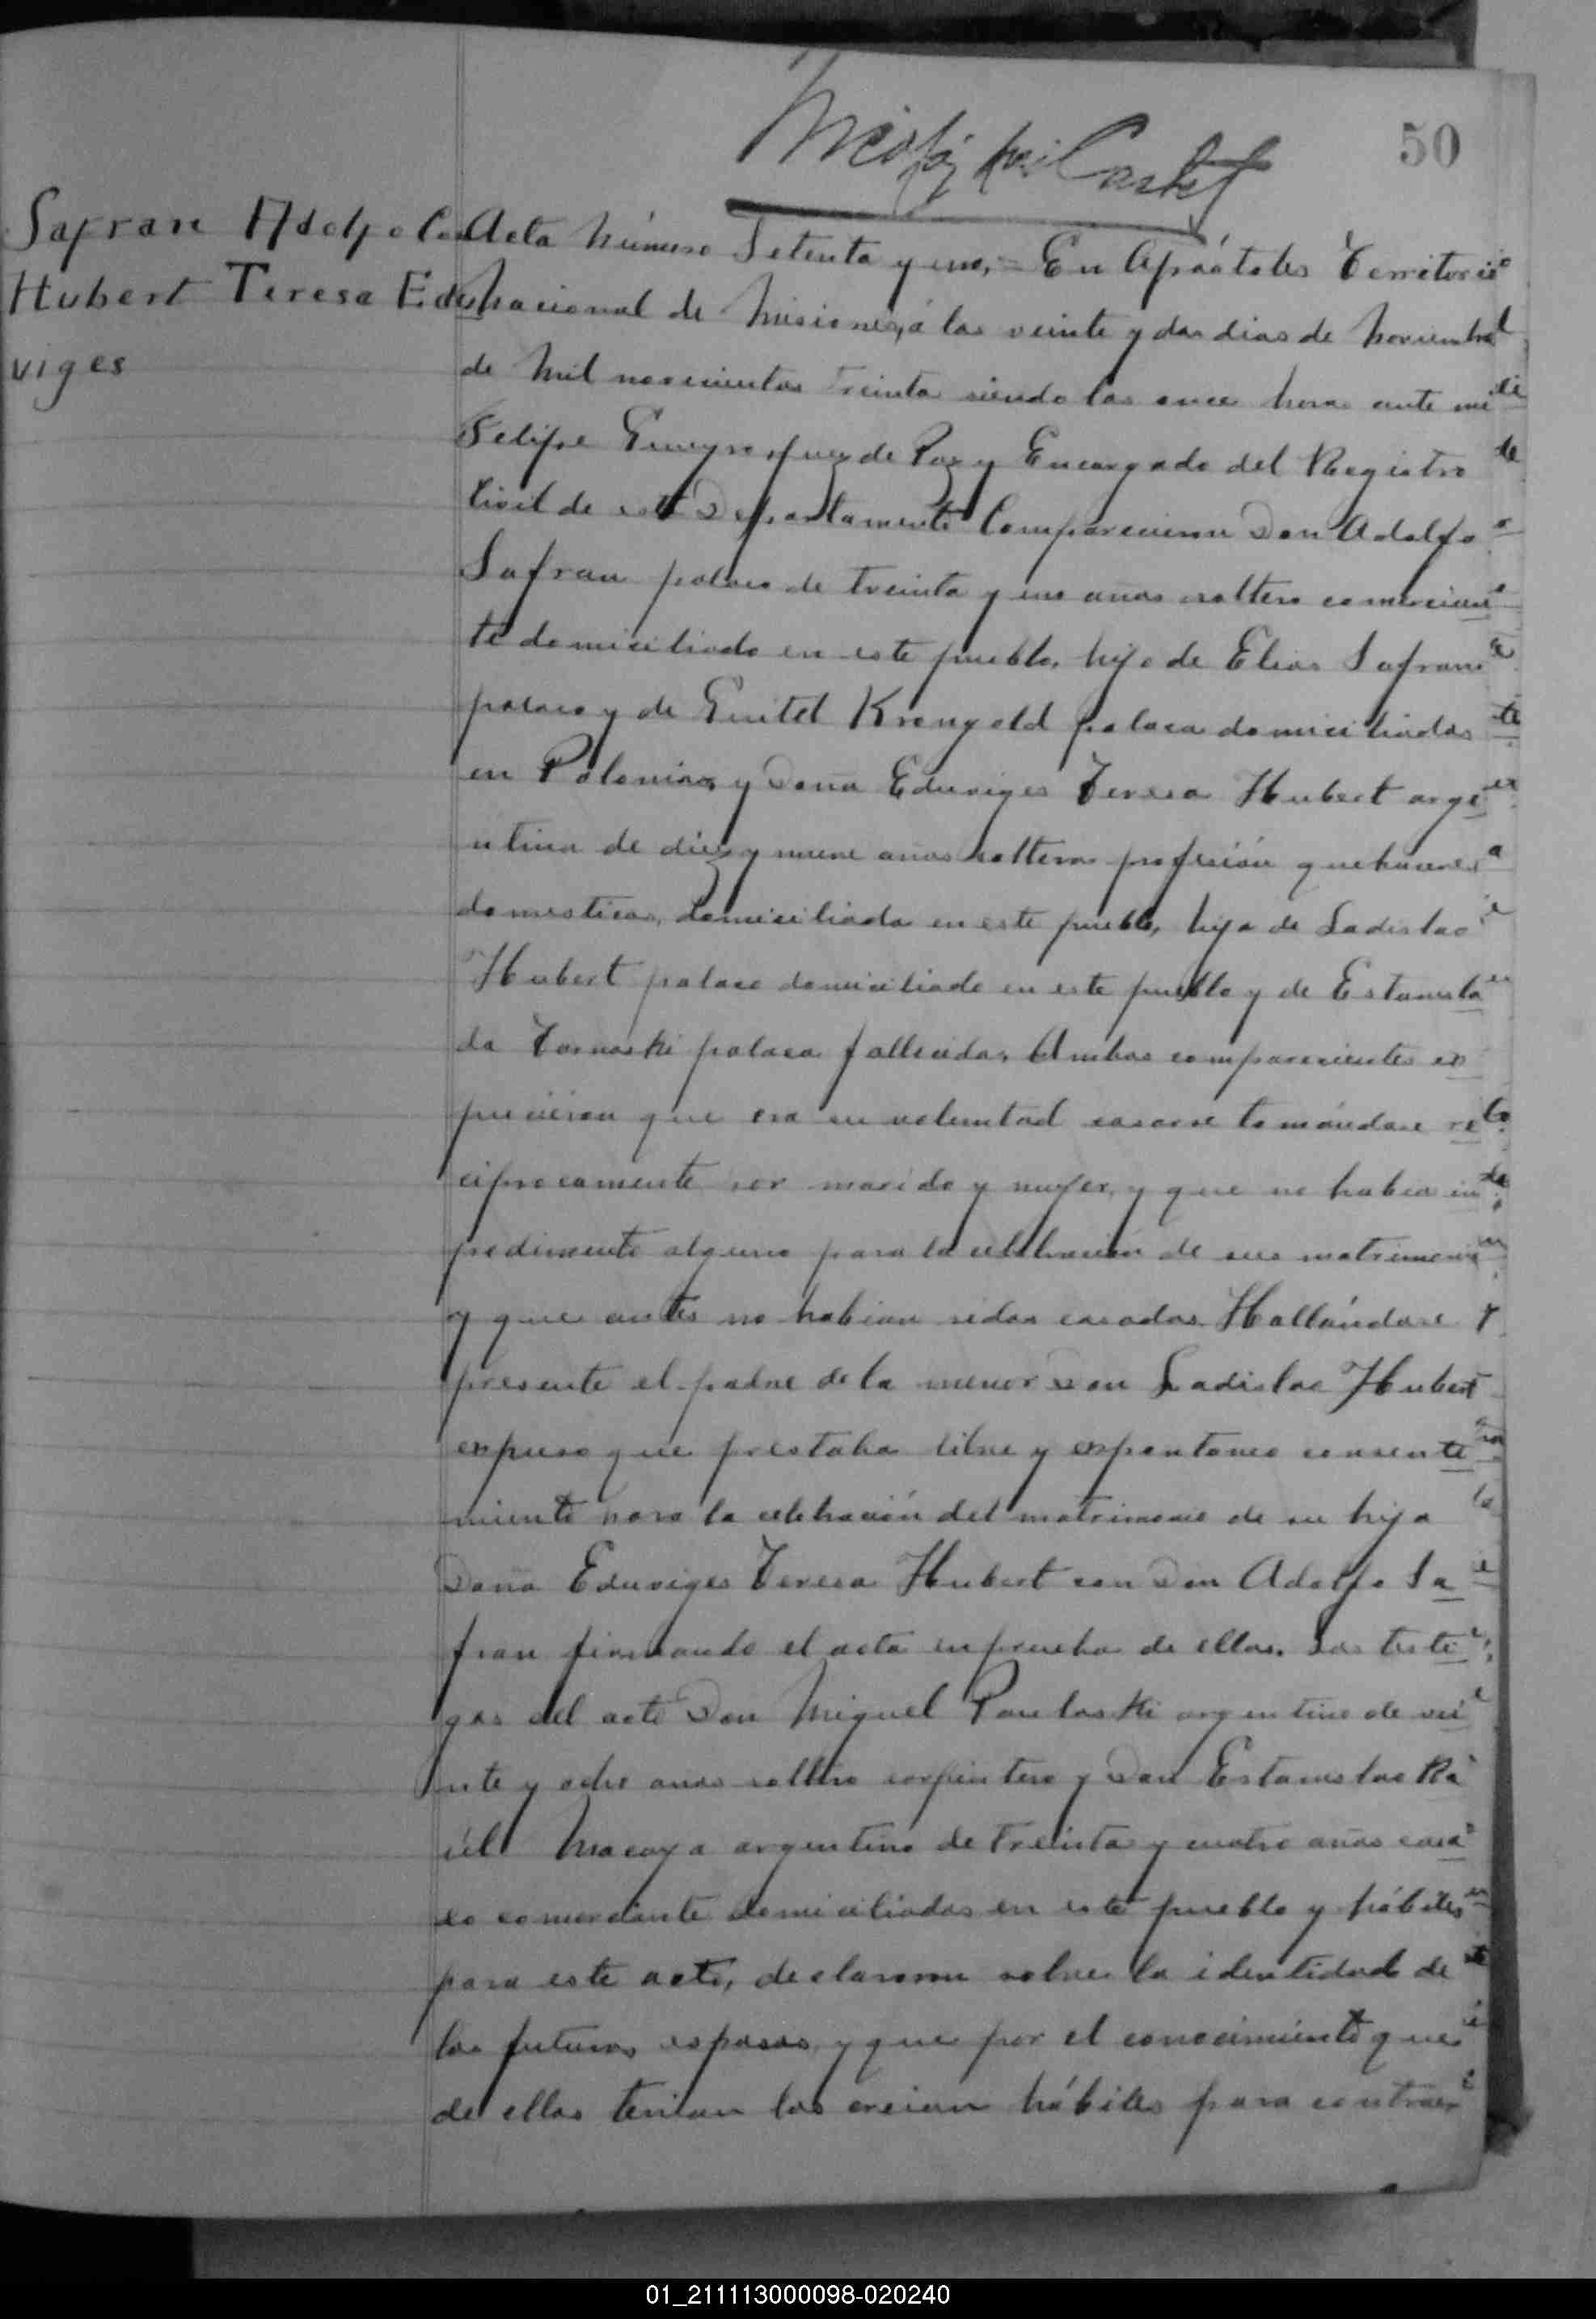 50
Safran Adolfo con
Hubert Teresa Edu
viges
Acta número Setenta y uno, = En Apóstoles Territorio
Nacional de Misiones, á los veinte y dos dias de Noviembre
de Mil novecientos Treinta siendo las once horas ante mi
Felipe Juez de Paz y Encargado del Registro
Civil de este Departamento Comparecieron Don Adolfo
Safran polaco de treinta y uno años soltero comercian
te domiciliado en este pueblo, hijo de Elias Safran
polaco y de Guitel Krongold polaca domiciliados
en Polonia, y Doña Eduviges Teresa Hubert arge
ntina de diez y nueve años soltera profesión quehaceres
domesticos, domiciliada en este pueblo, hija de Ladislao
Hubert polaco domiciliado en este pueblo y de Estanisla
da Tarnoski polaca fallecida, Ambos comparecientes ex
pucieron que era su voluntad casarse tomándose re
ciprocamente por marido y mujer, y que no habia im
pedimento alguno para la celebración de su matrimonio
y que antes no habian sidos casados. Hallándose
presente el padre de la menor Don Ladislao Hubert
expuso que prestaba libre y espontaneo consenti
miento para la celebración del matrimonio de su hija
Doña Eduviges Teresa Hubert con Don Adolfo Sa
fran firmando el acta en prueba de ellos. Los testi
gos del acto Don Miguel Pauloski argentino de vei
nte y ocho años soltero carpintero y Don Estanislao Ra
úl Macaya argentino de treinta y cuatro años casa
do comerciante domiciliados en este pueblo y hábiles
para este acto, declararon sobre la identidad de
los futuros esposos, y que por el conocimiento que
de ellos tenian los creian hábiles para contraer
01_211113000098-020240